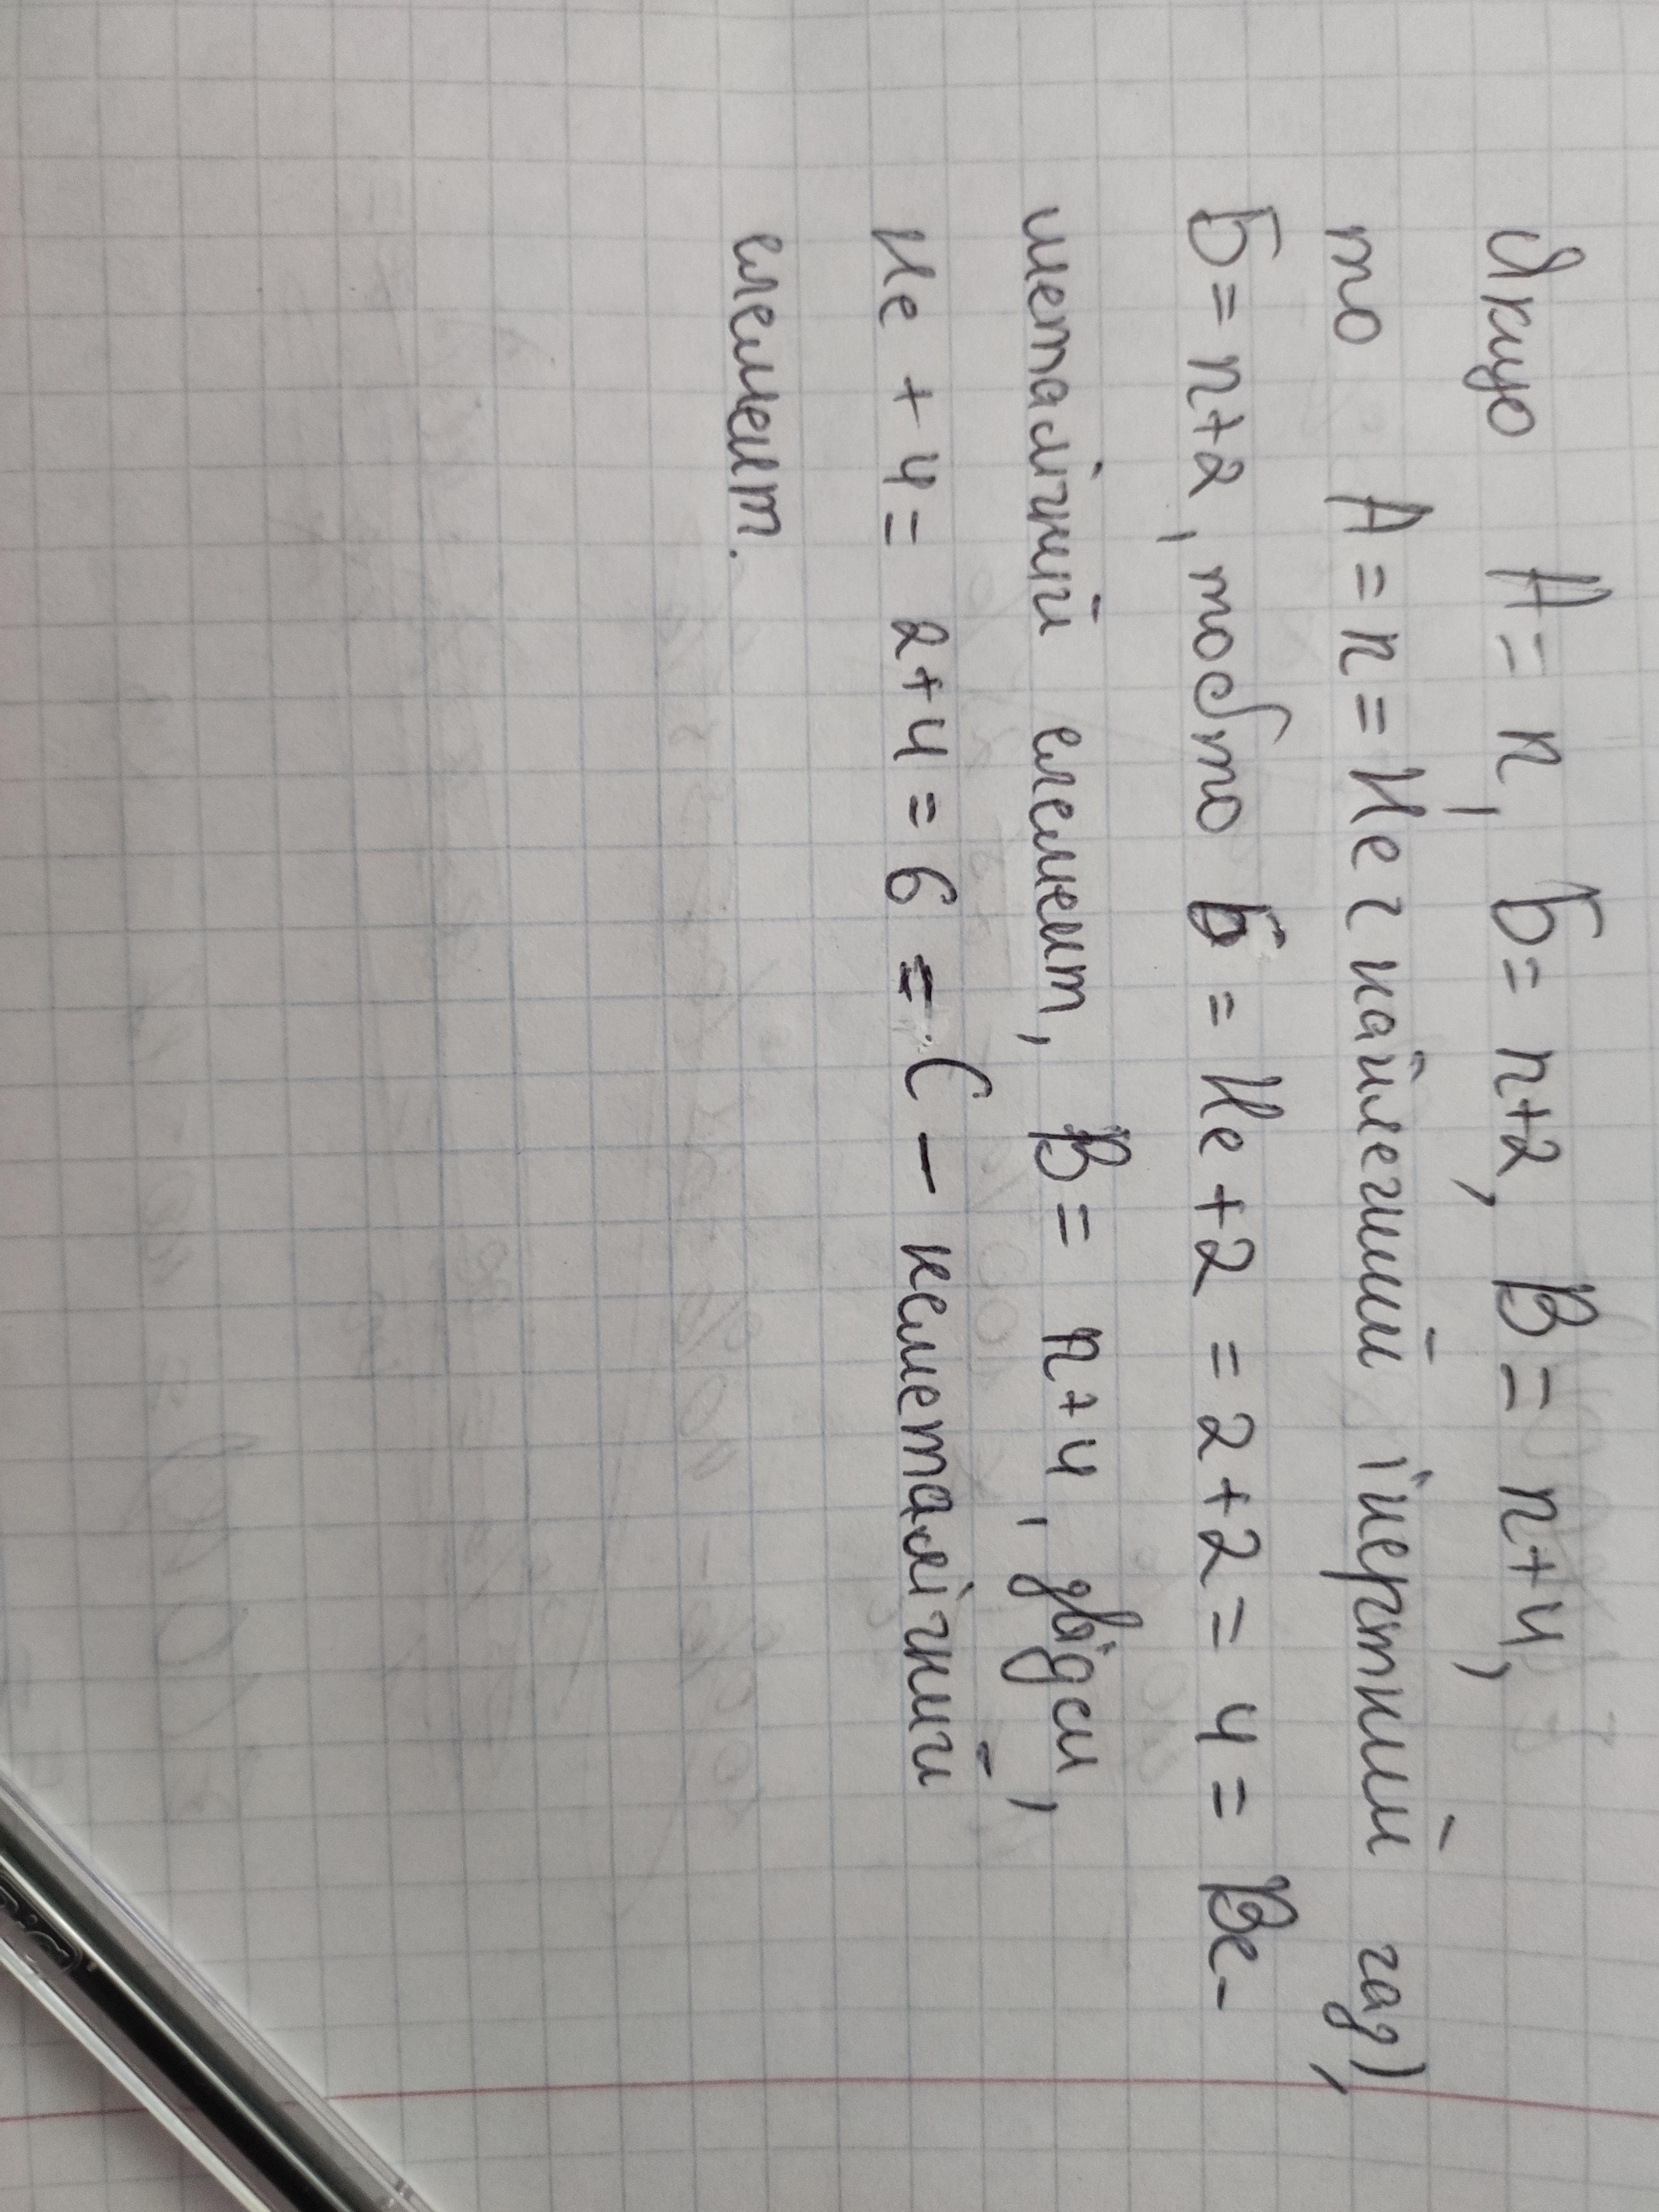 Якщо А = n, Б = n+2, В = n+4,
то А = n = Не (найлегший інертний газ),
Б = n+2, тобто Б = Не + 2 = 2+2 = 4 = Ве -
металічний елемент, В = n+4, звідси,
Не + 4 = 2+4 = 6 = С - неметалічний
елемент.
BIC